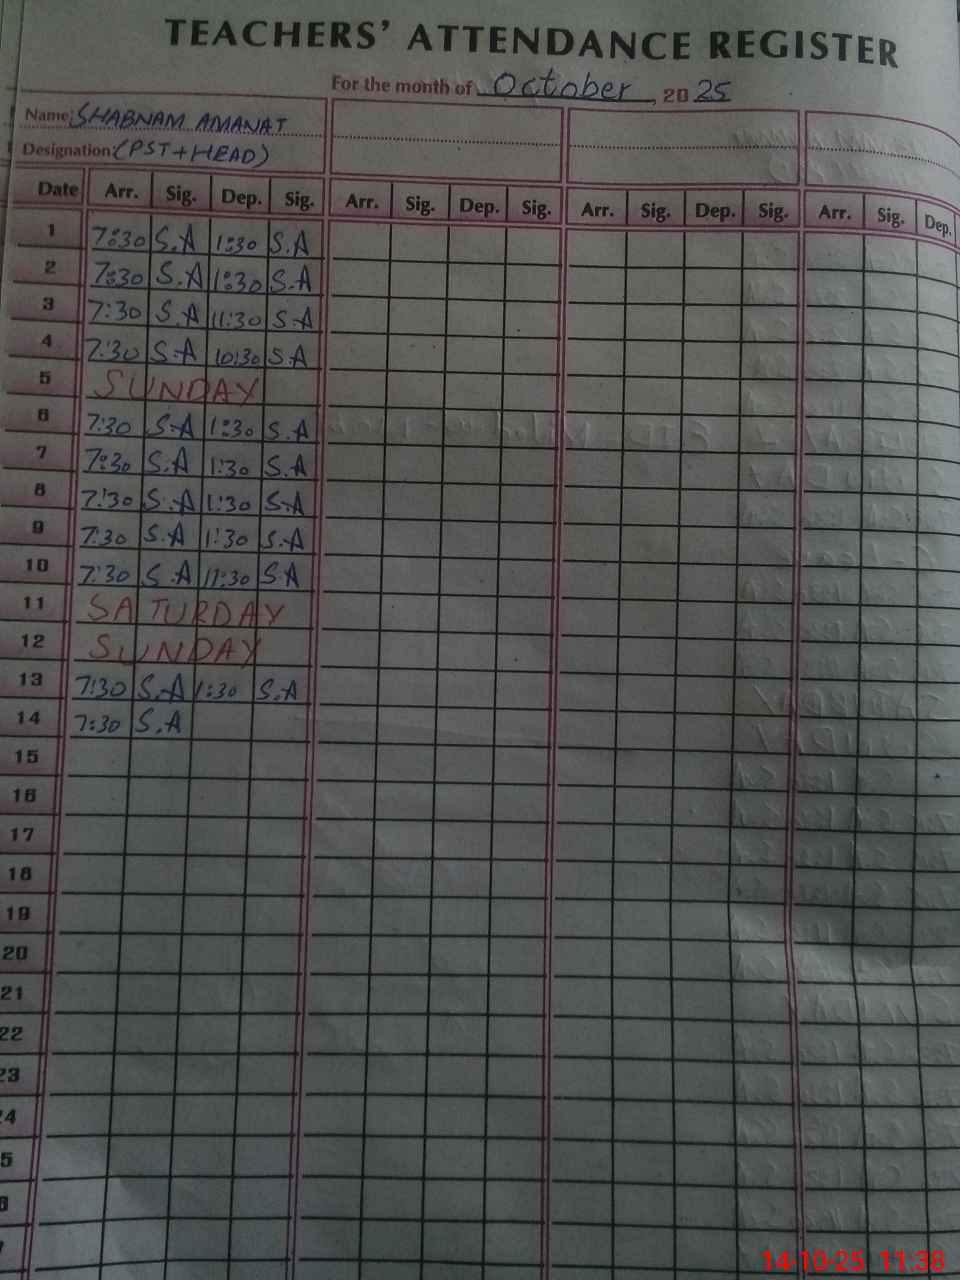 TEACHERS' ATTENDANCE REGISTER
For the month of October, 20 25
Name: SHABNAM AMANAT
Designation: (PST+HEAD)
Date Arr. Sig. Dep. Sig. Arr. Sig. Dep. Sig. Arr. Sig. Dep. Sig. Arr. Sig. Dep.
1 7:30 S.A 1:30 S.A
2 7:30 S.A 1:30 S.A
3 7:30 S.A 11:30 S.A
4 7:30 S.A 10:30 S.A
5 SUNDAY
6 7:30 S.A 1:30 S.A
7 7:30 S.A 1:30 S.A
8 7:30 S.A 1:30 S.A
9 7:30 S.A 1:30 S.A
10 7:30 S.A 11:30 S.A
11 SATURDAY
12 SUNDAY
13 7:30 S.A 1:30 S.A
14 7:30 S.A
15
16
17
18
19
20
21
22
23
24
5
6
14-10-25 11:38